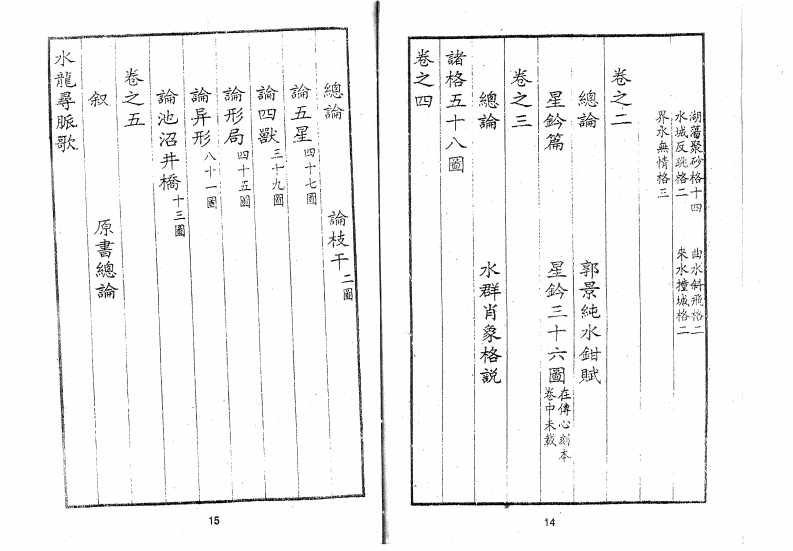 湖蕩聚砂格十四
水城反跳格二
界水無情格三
曲水斜飛格二
來水撞城格二
卷之二
總論
郭景純水鉗賦
星鈐篇
星鈐三十六圖 在傳心刻本
卷中未載
卷之三
總論
水群肖象格説
諸格五十八圖
卷之四
14
總論
論枝干 二圖
論五星 四十七圖
論四獸 三十九圖
論形局 四十五圖
論异形 八十一圖
論池沼井橋 十三圖
卷之五
叙
原書總論
水龍尋脈歌
15